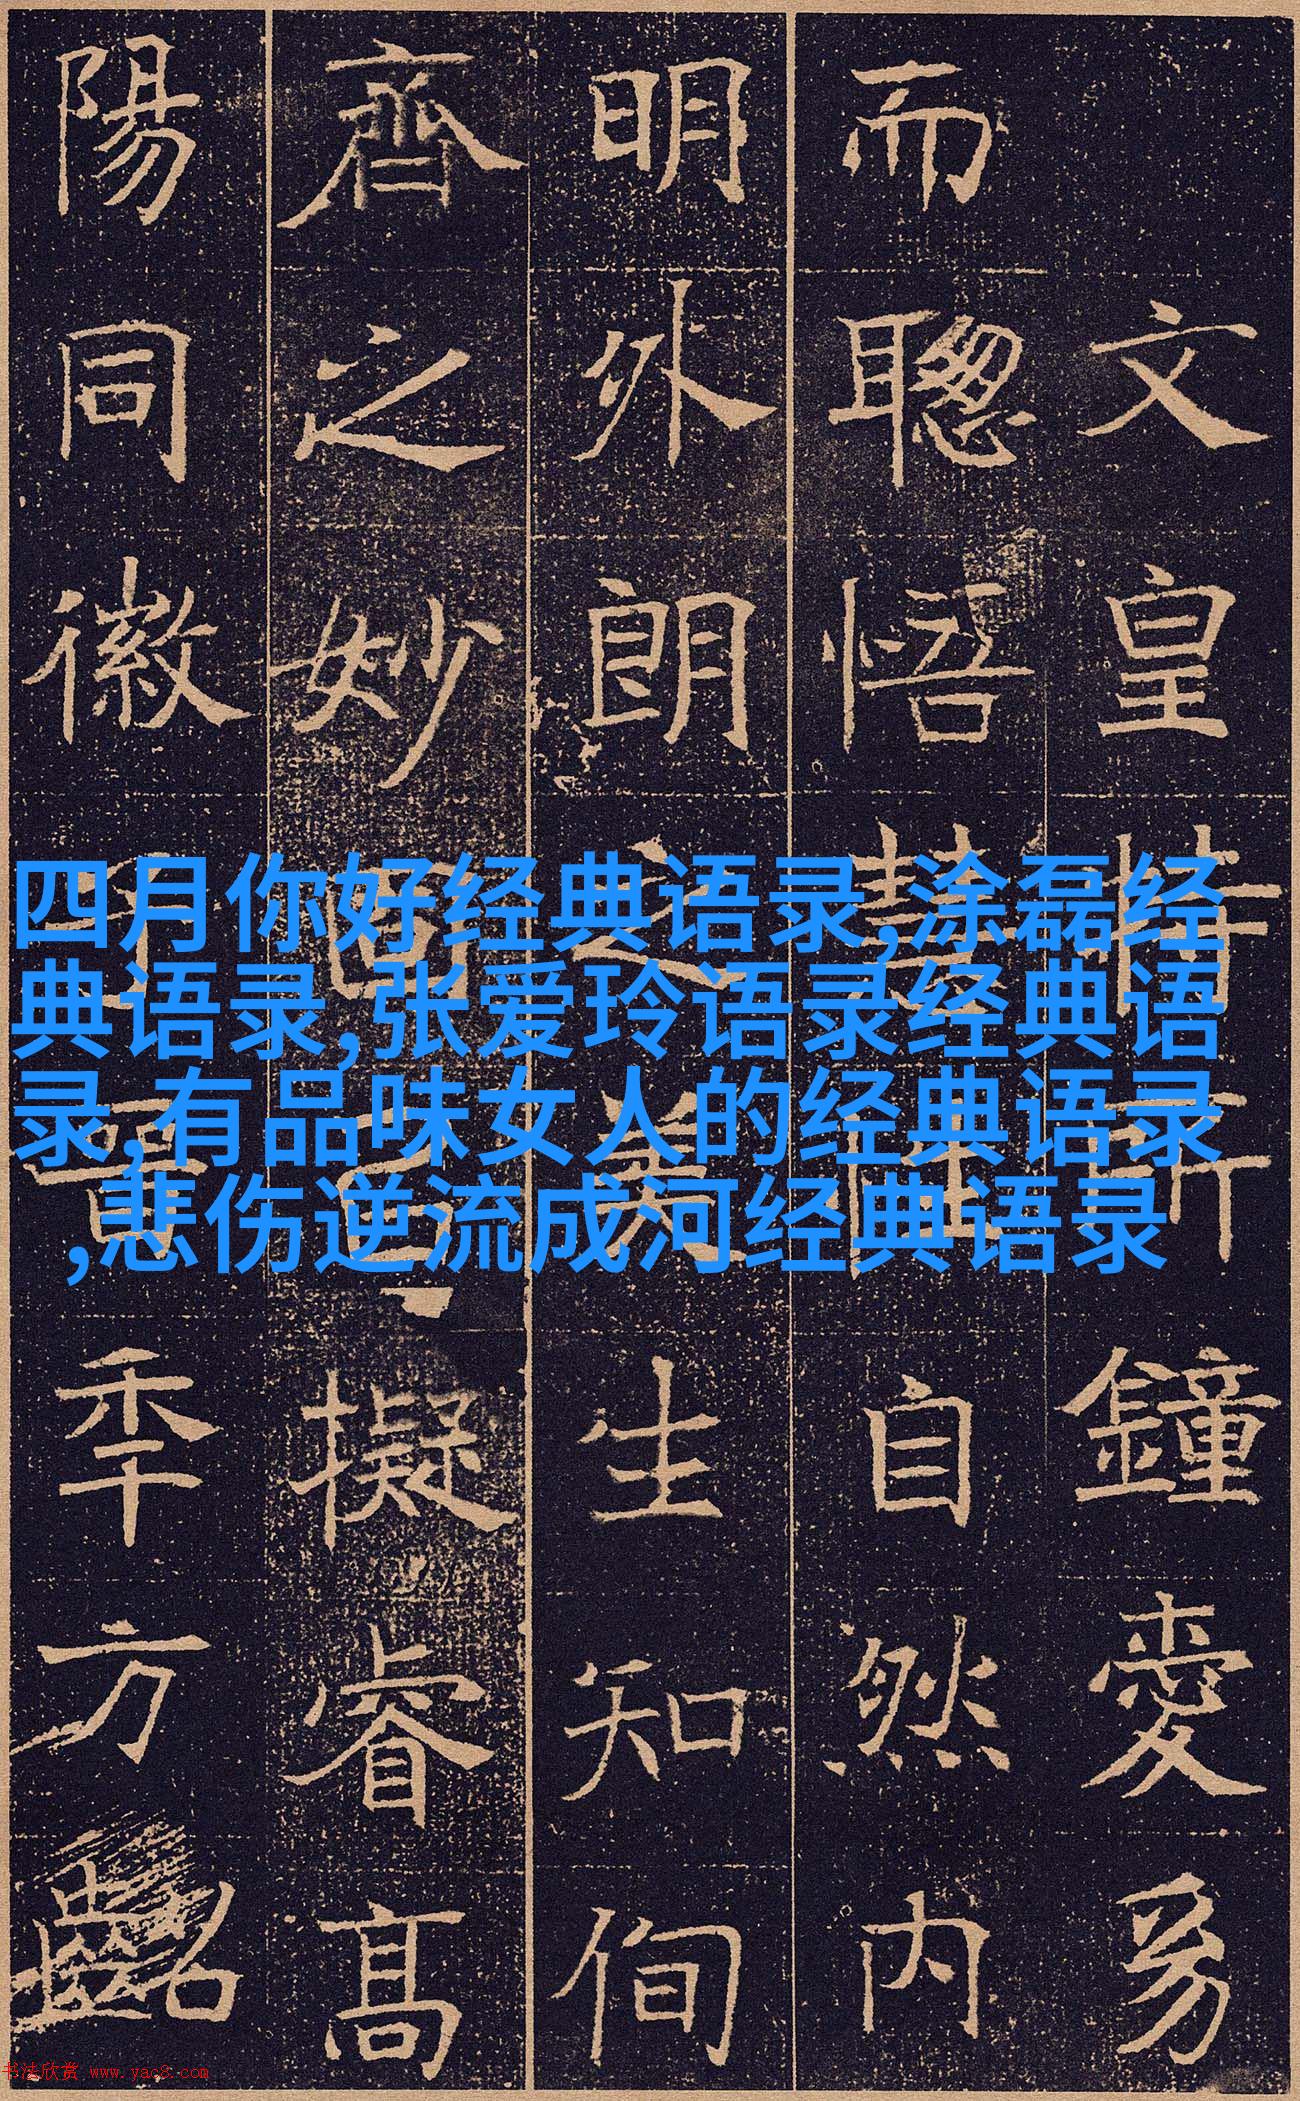 文皇情所鐘愛
而聰悟慧性自然内
明外朗之美生知徇
齊之妙因擬睿高
陽同徽子晉季方齠
四月你好经典语录,涂磊经
典语录,张爱玲语录经典语
录,有品味女人的经典语录
,悲伤逆流成河经典语录
书法欣赏 www.yac8.com